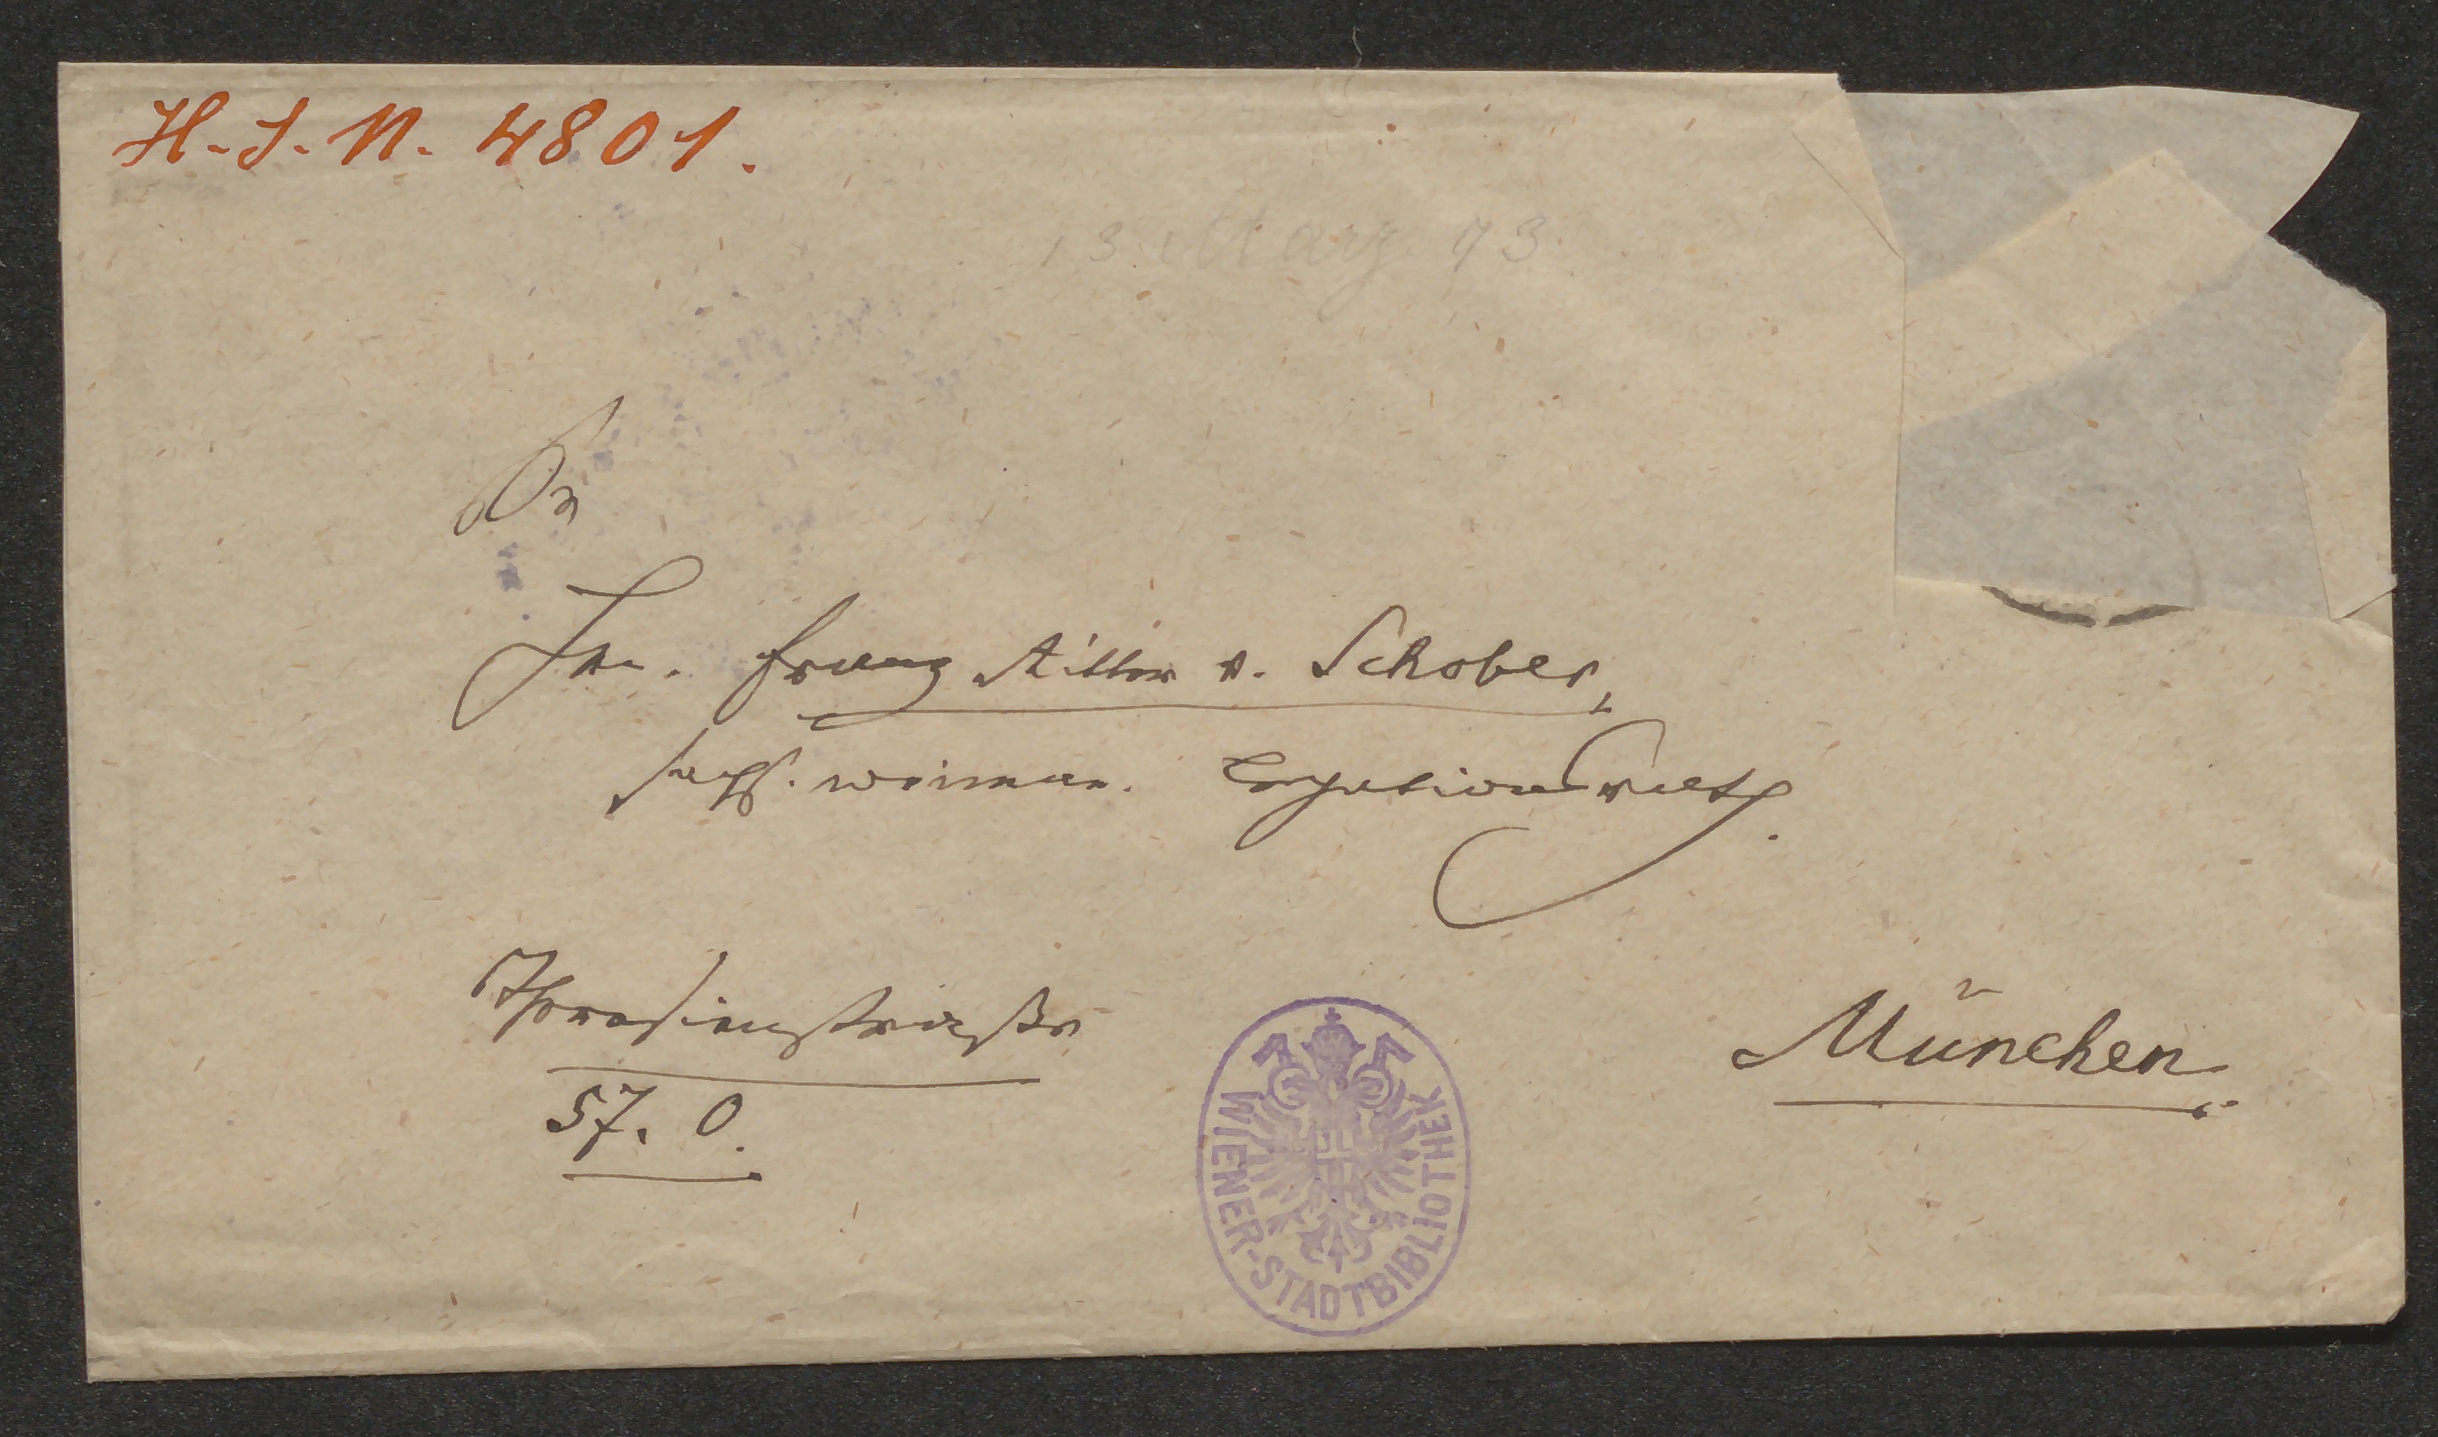 H. I. N. 4801.
13. März 73.
Sr
Hn. Franz Ritter v. Schober,
sachs. weimar. Legationsrath.
Theresienstraße
57. 0.
München
WIENER-STADTBIBLIOTHEK